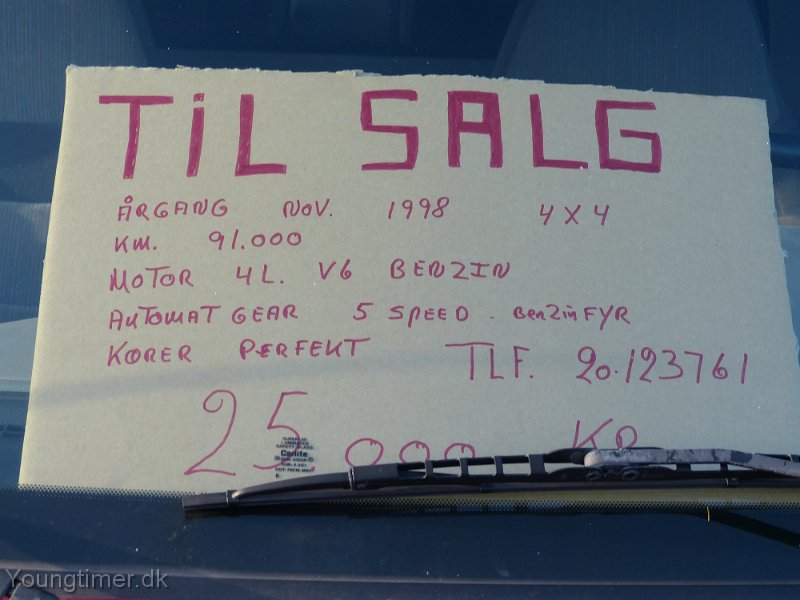 TiL SALG
ÅRGANG NOV. 1998 4X4
KM. 91.000
MOTOR 4L. V6 BENZIN
AUTOMAT GEAR 5 SPEED. BenZinFYR
KØRER PERFEKT TLF. 20.123761
25.000 KR
Carlite
Youngtimer.dk